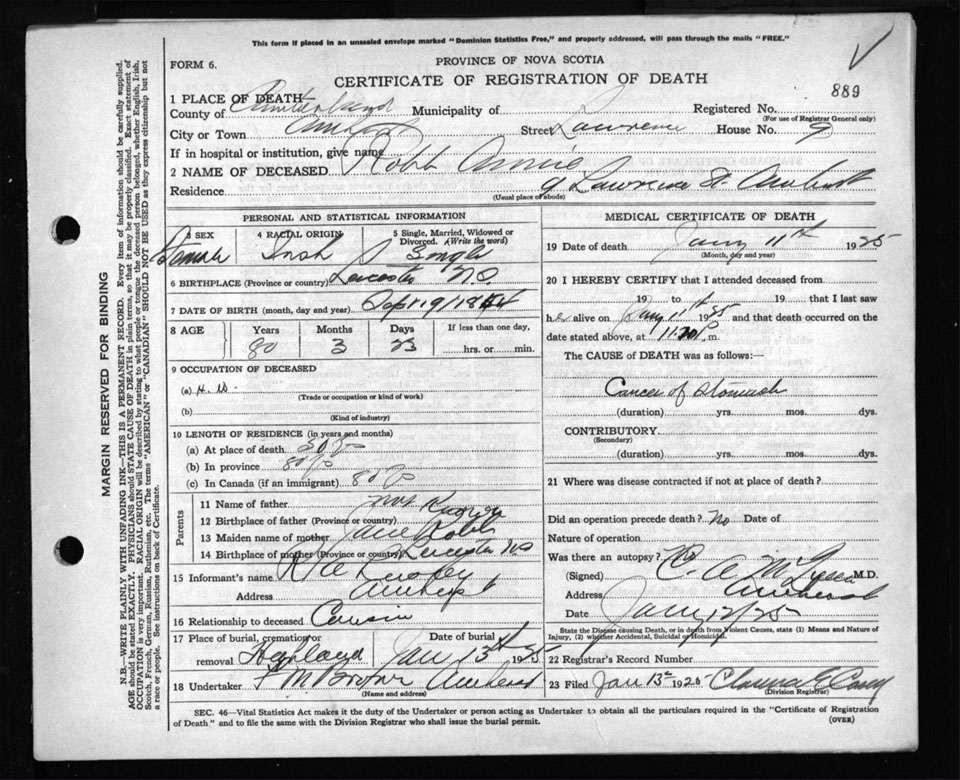 This form if placed in an unsealed envelope marked "Dominion Statistics Free," and properly addressed, will pass through the mails "FREE."
FORM 6.
PROVINCE OF NOVA SCOTIA
CERTIFICATE OF REGISTRATION OF DEATH
889
1 PLACE OF DEATH
County of Cumberland Municipality of Registered No.
(For use of Registrar General only)
City or Town Amherst Street Lawrence House No. 9
If in hospital or institution, give name
2 NAME OF DECEASED Robb Annie
Residence 9 Lawrence St. Amherst
(Usual place of abode)
PERSONAL AND STATISTICAL INFORMATION
3 SEX 4 RACIAL ORIGIN 5 Single, Married, Widowed or Divorced. (Write the word)
Female Irish Single
6 BIRTHPLACE (Province or country) Leicester N.S.
7 DATE OF BIRTH (month, day and year) Sep 19/1844
8 AGE Years Months Days If less than one day,
80 3 23 hrs. or min.
9 OCCUPATION OF DECEASED
(a) H. W.
(Trade or occupation or kind of work)
(b)
(Kind of industry)
10 LENGTH OF RESIDENCE (in years and months)
(a) At place of death 50 yrs
(b) In province 80 yrs
(c) In Canada (if an immigrant) 80 yrs
Parents
11 Name of father Not Known
12 Birthplace of father (Province or country)
13 Maiden name of mother Jane Robb
14 Birthplace of mother (Province or country) Leicester NS
15 Informant's name
Address Amherst
16 Relationship to deceased Cousin
17 Place of burial, cremation or removal Highland Date of burial Jan 13th 1925
18 Undertaker F. M. Brown Amherst
(Name and address)
MEDICAL CERTIFICATE OF DEATH
19 Date of death Jany 11th 1925
(Month, day and year)
20 I HEREBY CERTIFY that I attended deceased from
19 to 19 that I last saw
her alive on Jany 11th 1925 and that death occurred on the
date stated above, at 11.30 P m.
The CAUSE OF DEATH was as follows:—
Cancer of Stomach
(duration) yrs. mos. dys.
CONTRIBUTORY
(Secondary)
(duration) yrs. mos. dys.
21 Where was disease contracted if not at place of death?
Did an operation precede death? No Date of
Nature of operation
Was there an autopsy? No
(Signed) C. A. M. M.D.
Address Amherst
Date Jany 12/25
State the Disease causing Death, or in death from Violent Causes, state (1) Means and Nature of Injury, (2) whether Accidental, Suicidal or Homicidal.
22 Registrar's Record Number
23 Filed Jan 13th 1925 E Casey
(Division Registrar)
SEC. 46—Vital Statistics Act makes it the duty of the Undertaker or person acting as Undertaker to obtain all the particulars required in the "Certificate of Registration
of Death" and to file the same with the Division Registrar who shall issue the burial permit. (OVER)
MARGIN RESERVED FOR BINDING
N.B.—WRITE PLAINLY WITH UNFADING INK—THIS IS A PERMANENT RECORD. Every item of information should be carefully supplied.
AGE should be stated EXACTLY. PHYSICIANS should STATE CAUSE OF DEATH in plain terms, so that it may be properly classified. Exact statement of
OCCUPATION is very important. RACIAL ORIGIN will be described by stating to what people or tongue the deceased person belonged, whether English, Irish,
Scotch, French, German, Russian, Ruthenian, etc. The terms "AMERICAN" or "CANADIAN" SHOULD NOT BE USED as they express citizenship but not
a race or people. See instructions on back of Certificate.